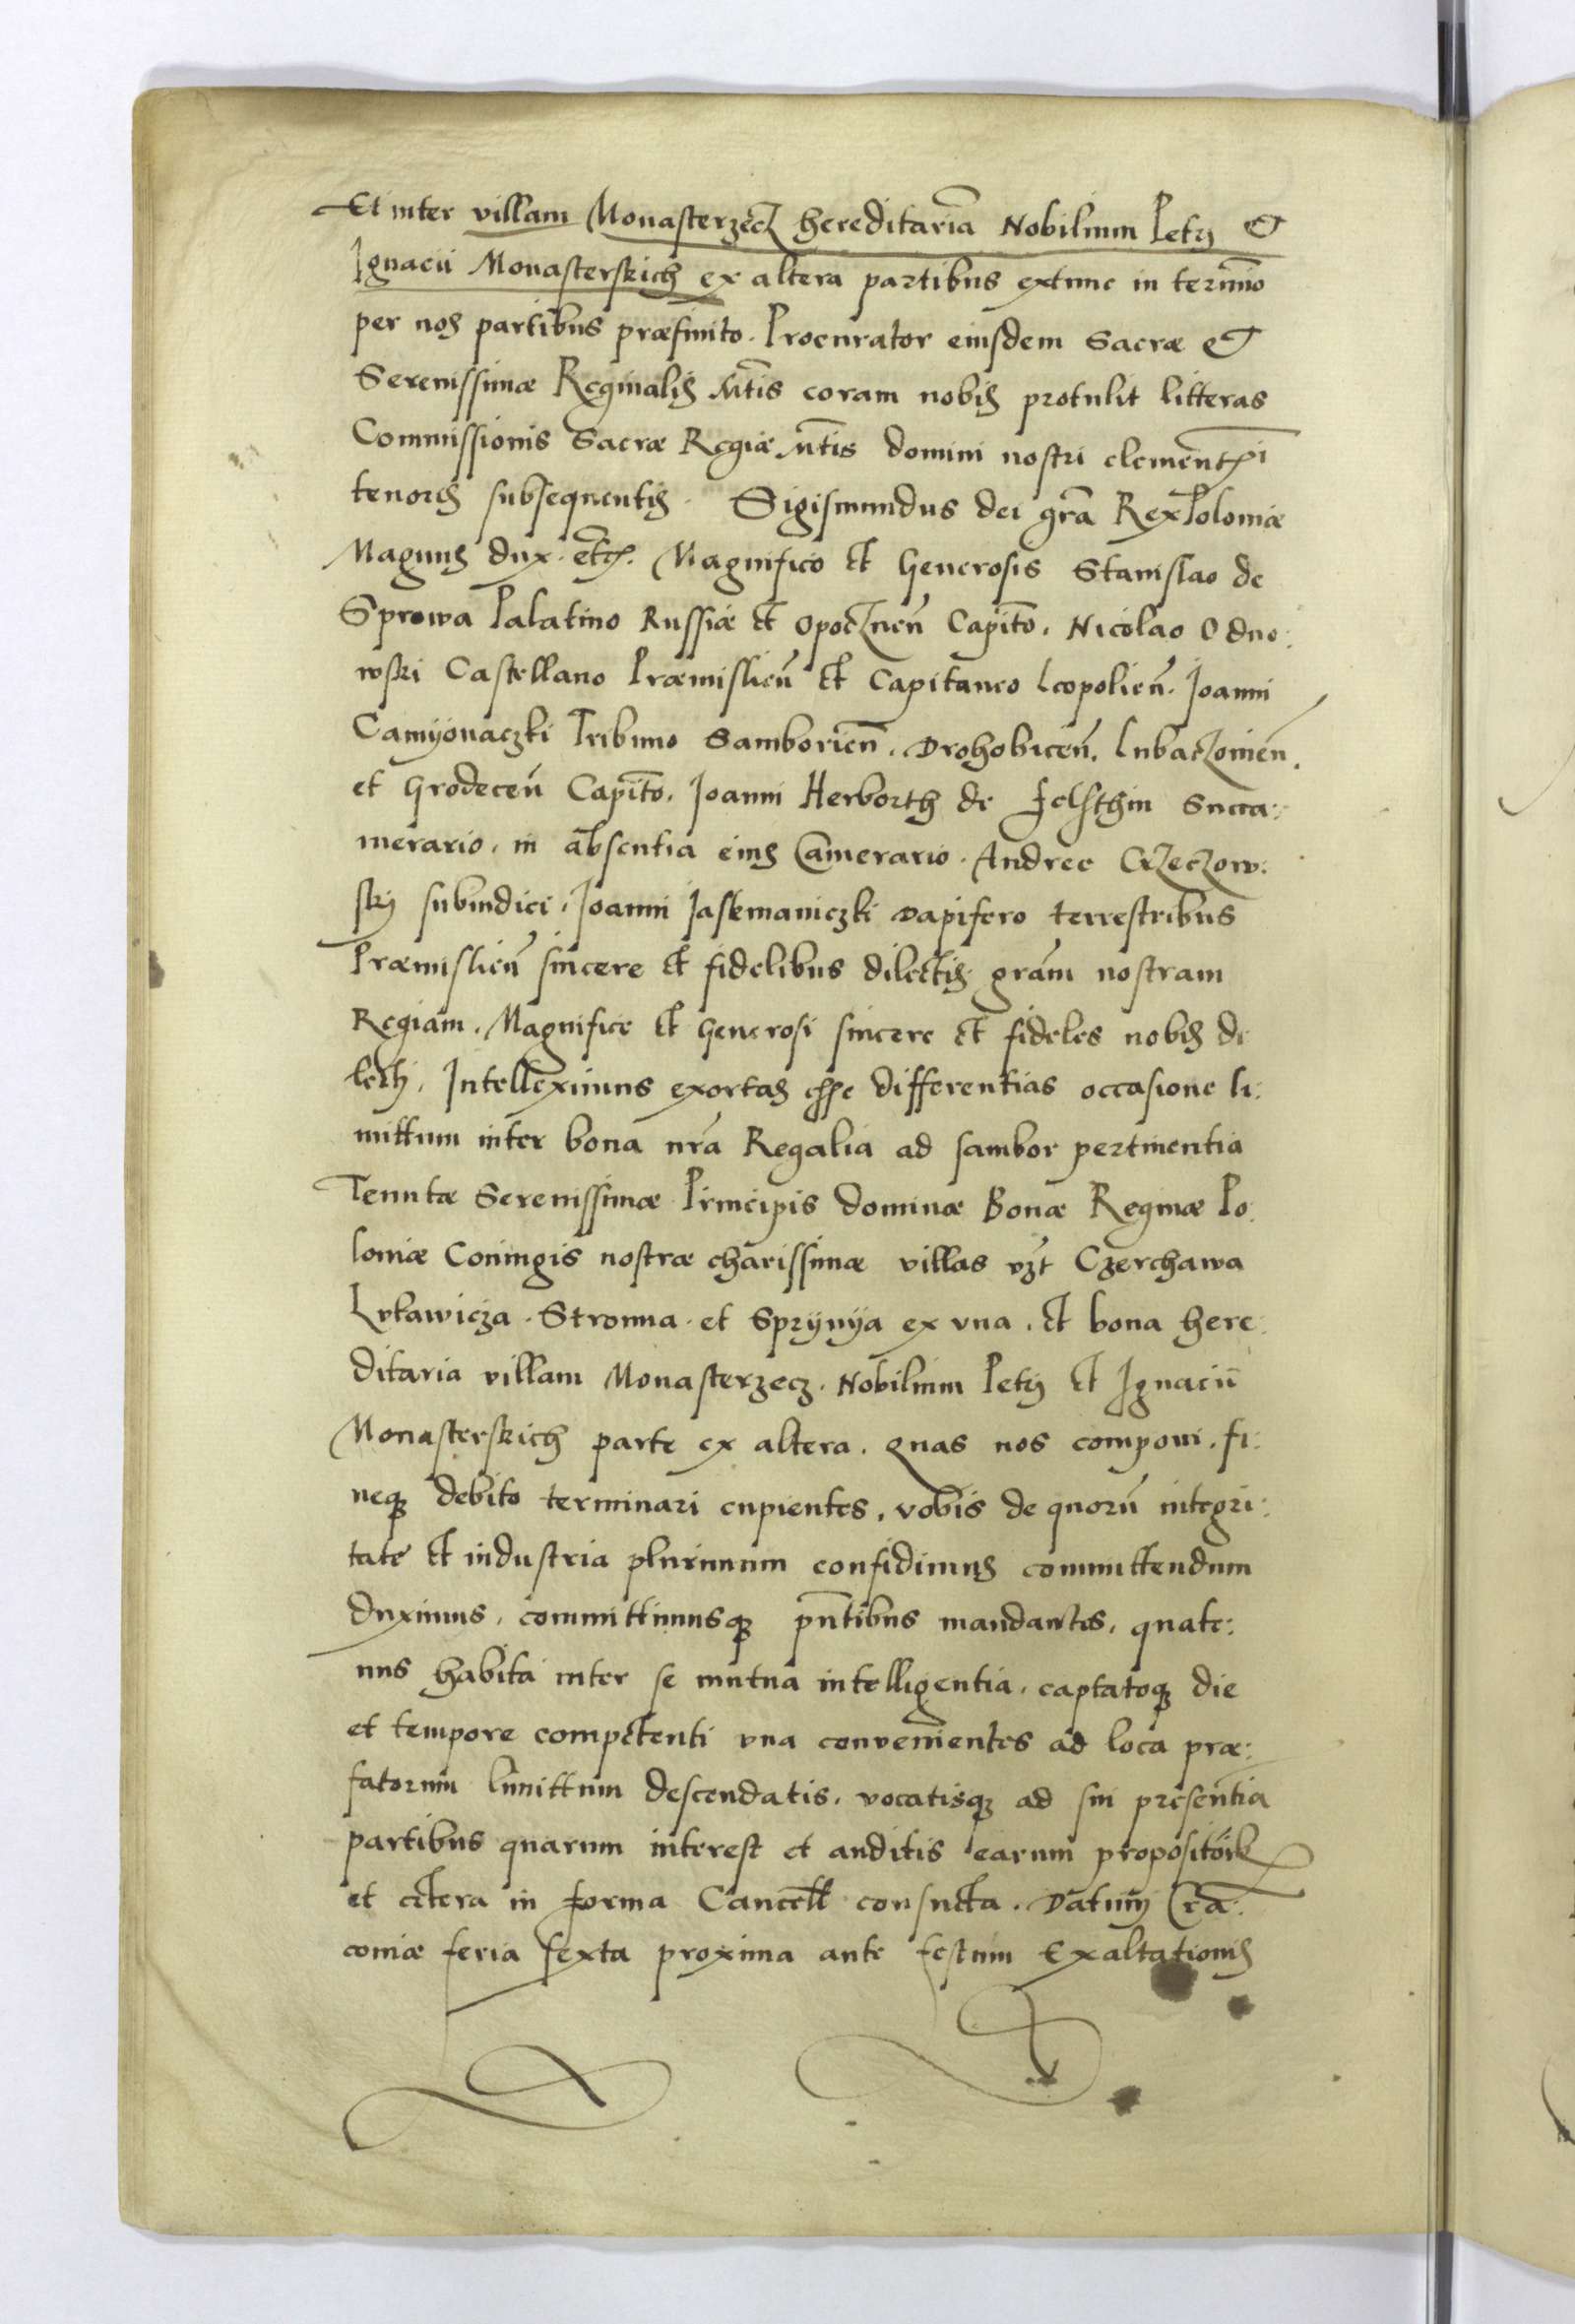 Et inter villam Monasterzecz hereditariã Nobilium Petri et
Ignacii Monasterskich ex altera partibus extunc in termĩo
per nos partibus præfinito. Procurator eiusdem Sacræ et
Serenissimæ Reginalis Mtis coram nobis protulit litteras
Commissionis Sacræ Regiæ Mtis domini nostri clementxi
tenoris subsequentis. Sigismundus dei grã Rex Poloniæ
Magnus dux. etc. Magnifico et Generosis Stanislao de
Sprowa Palatino Russiæ et Opocznen̄ Capitō. Nicolao Odno:
wski Castellano Præmislien̄ et Capitaneo Leopolien̄. Joanni
Camyonaczki Tribuno Samborien̄. Drohobicen̄. Lubaczonien̄.
et Grodecen̄ Capitō. Joanni Herborth de Felsthin Succa:
merario. in absentia eius Camerario. Andree Crzeczow:
skij subiudici. Joanni Jaskmaniczki Dapifero terrestribus
Præmislien̄ sincere et fidelibus dilectis grãm nostram
Regiam. Magnifice et Generosi sincere et fideles nobis di
lecti. Intelleximus exortas esse differentias occasione li:
mittum inter bona nrã Regalia ad sambor pertinentia
Tenutæ Serenissimæ Principis dominæ Bonæ Reginæ Po:
loniæ Coniugis nostræ charissimæ villas vzt Czerchawa
Lutawicza. Stronna. et Sprynya ex vna. et bona here:
ditaria villam Monasterzecz. Nobilium Petri et Ignacii
Monasterskich parte ex altera. quas nos componi. fi:
neqz debito terminari cupientes. vobis de quorū integri:
tate et industria plurimum confidimus committendum
duximus. committimusqz pñtibus mandantes. quate:
nus habita inter se mutua intelligentia. captatoqz die
et tempore competenti vna convenientes ad loca præ:
fatorum limittum descendatis. vocatisqz ad sui presentia
partibus quarum interest et auditis earum propositōib
et cetera in forma Cancell consueta. Datum Cra:
coniæ feria sexta proxima ante festum Exaltationis